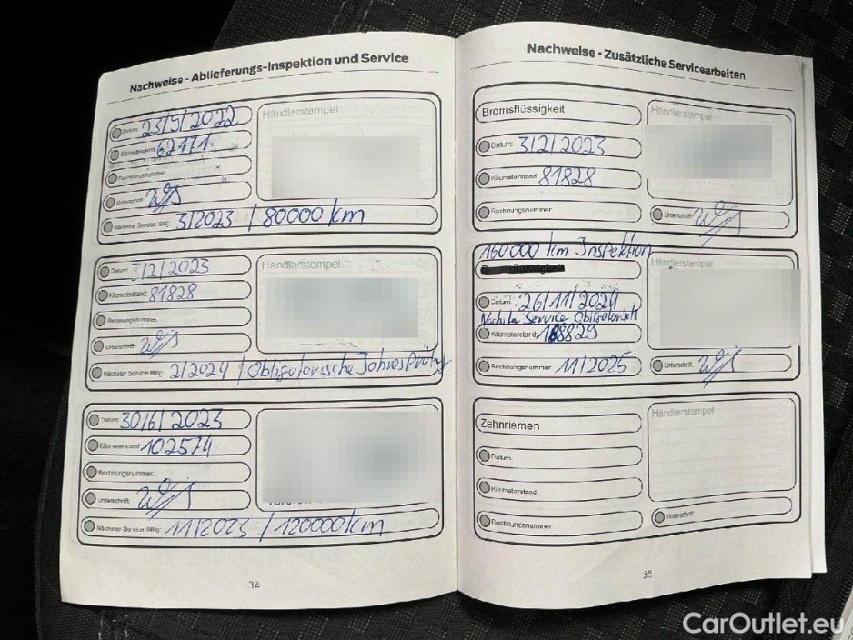 Nachweise - Ablieferungs-Inspektion und Service
Datum: 23/9/2022
Händlerstempel
Kilometerstand: 62171.
Rechnungsnummer:
Unterschrift:
Nächster Service fällig: 3/2023 / 80000 km
Datum: 3/2/2023
Händlerstempel
Kilometerstand: 81828
Rechnungsnummer:
Unterschrift:
Nächster Service fällig: 2/2024 / Obligatorische Jahres
Datum: 30/6/2023
Kilometerstand: 102574
Rechnungsnummer:
Unterschrift:
Nächster Service fällig: 11/2023 / 120000 km
34
Nachweise - Zusätzliche Servicearbeiten
Bremsflüssigkeit
Händlerstempel
Datum: 3/2/2023
Kilometerstand: 81828
Rechnungsnummer:
Unterschrift:
160000 km Inspektion
Händlerstempel
Datum: 26/11/2024
Service
Kilometerstand: 168829
Rechnungsnummer: 11/2025
Unterschrift:
Zahnriemen
Händlerstempel
Datum:
Kilometerstand:
Rechnungsnummer:
Unterschrift:
35
CarOutlet.eu